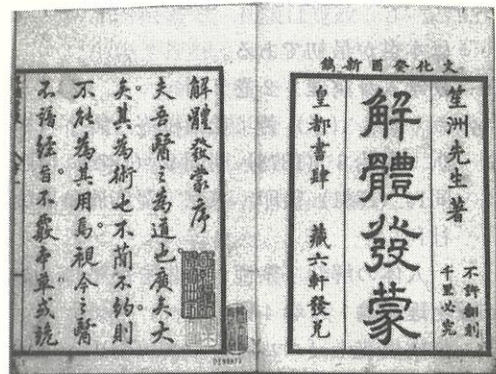 文化癸酉新鐫
笙洲先生著
不許翻刻
千里必究
解體發蒙
皇都書肆 藏六軒發兌
解體發蒙序
夫吾醫之為道也廣矣大
矣。其為術也不簡不約則
不能為其用焉。視今之醫
不諳經旨。不覈本草或詭